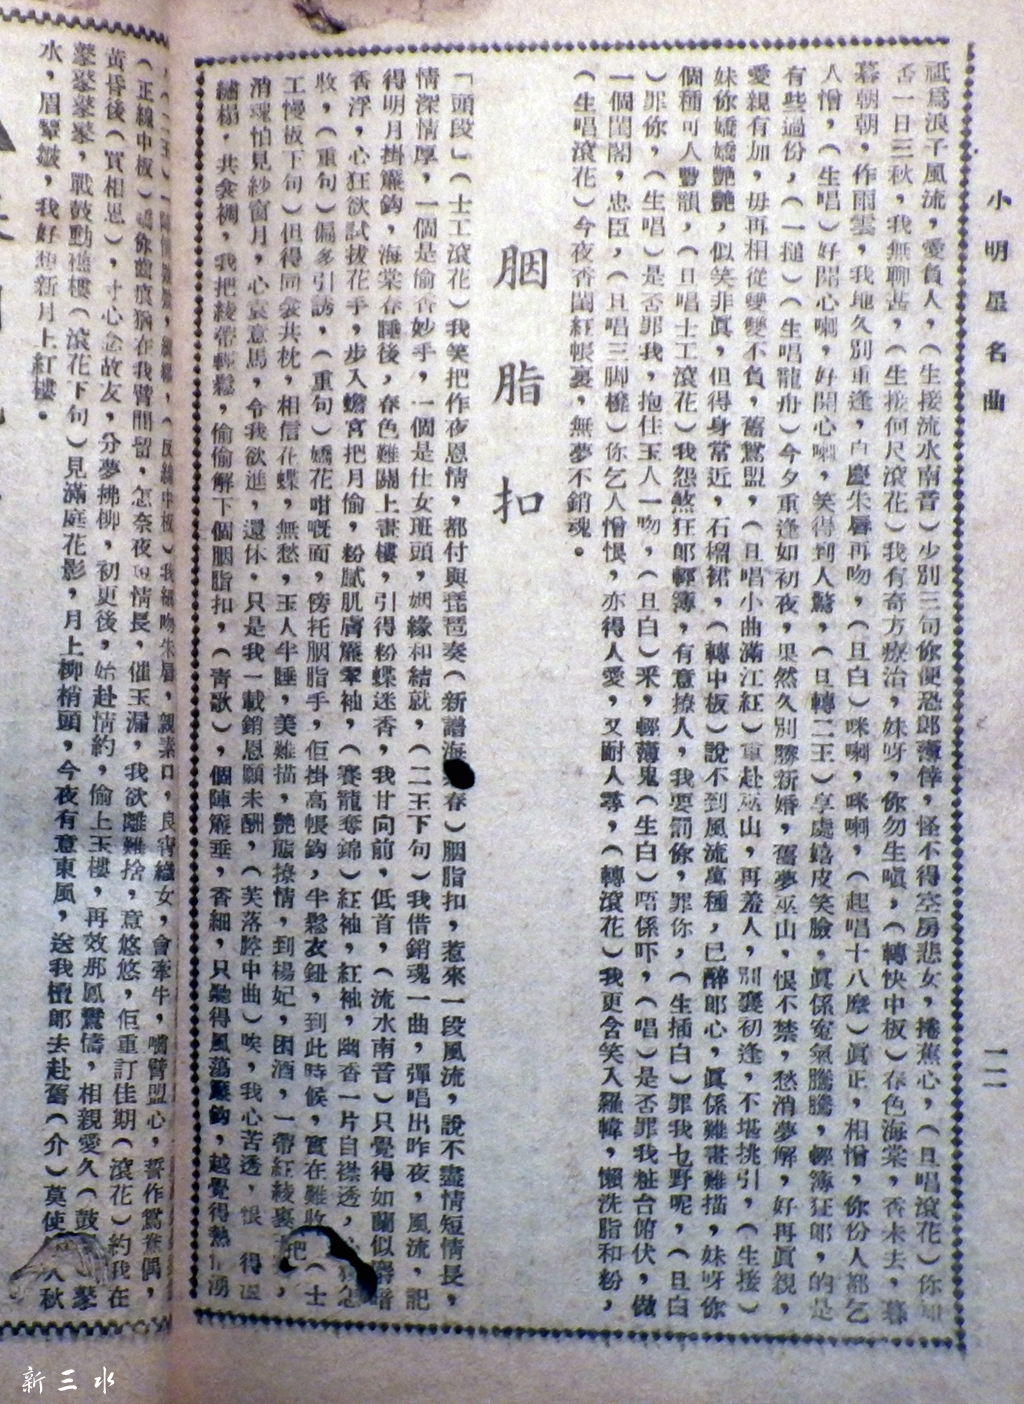 小明星名曲
二二
祗爲浪子風流，愛負人，（生接流水南音）少別三句你便恐郎薄悻，怪不得空房悲女，捲蕉心，（旦唱滾花）你知
否一日三秋，我無聊甚，（生接何尺滾花）我有奇方療治，妹呀，你勿生嗔，（轉快中板）春色海棠，香未去，暮
暮朝朝，作雨雲，我地久別重逢，自慶朱唇再吻，（旦白）咪喇，咪喇，（起唱十八麽）眞正，相憎，你份人都乞
人憎，（生唱）好開心喇，好開心喇，笑得到人驚，（旦轉二王）享處嬉皮笑臉，眞係寃氣騰騰，輕簿狂郎，的是
有些過份，（一搥）（生唱龍舟）今夕重逢如初夜，果然久別勝新婚，舊夢巫山，恨不禁，愁消夢解，好再眞親，
愛親有加，毋再相從雙雙不負，舊鴛盟，（旦唱小曲滿江紅）重赴巫山，再羞人，別褱初逢，不堪挑引，（生接）
妹你嬌嬌艷艷，似笑非眞，但得身常近，石榴裙，（轉中板）說不到風流萬種，已醉郎心，眞係難畫難描，妹呀你
個種可人豐韻，（旦唱士工滾花）我怨煞狂郎輕簿，有意撩人，我要罰你，罪你，（生插白）罪我乜野呢，（旦白
）罪你，（生唱）是否罪我，抱住玉人一吻，（旦白）釆，輕薄鬼（生白）唔係吓，（唱）是否罪我粧台俯伏，做
一個閨閣，忠臣，（旦唱三脚櫈）你乞人憎恨，亦得人愛，又耐人尋，（轉滾花）我更含笑入羅幃，懶洗脂和粉，
（生唱滾花）今夜香閨紅帳裏，無夢不銷魂。
胭脂扣
「頭段」（士工滾花）我笑把作夜恩情，都付與琵琶奏（新譜海春）胭脂扣，惹來一段風流，說不盡情短情長，
情深情厚，一個是偷香妙手，一個是仕女班頭，姻緣和結就，（二王下句）我借銷魂一曲，彈唱出昨夜，風流，記
得明月掛簾鈎，海棠春睡後，春色難關上畫樓，引得粉蝶迷香，我甘向前，低首，（流水南音）只覺得如蘭似麝暗
香浮，心狂欲試拔花手，步入蟾宮把月偷，粉膩肌膚簾翠袖，（賽龍奪錦）紅袖，紅袖，幽香一片自襟透，怎
收，（重句）偏多引誘，（重句）嬌花咁嘅面，傍托胭脂手，佢掛高帳鈎，半鬆衣鈕，到此時候，實在難收（士
工慢板下句）但得同衾共枕，相信花蝶，無愁，玉人半睡，美難描，艷態撩情，到楊妃，困酒，一帶紅綾裹把，
消魂怕見紗窗月，心袁意馬，令我欲進，還休，只是我一載銷恩願未酬，（芙落腔中曲）唉，我心苦透，恨得
繡榻，共衾裯，我把綾帶輕鬆，偷偷解下個胭脂扣，（靑歌），個陣簾垂，香細，只聽得風蕩簾鈎，越覺得熱湧
（二王）一陣情，（反線中板）我細吻朱唇，親素口，良宵織女，會牽牛，嚙臂盟心，誓作鴛鴦偶，
（正線中板）嬌你齒痕猶在我臂間留，怎奈夜短情長，催玉漏，我欲離難捨，意悠悠，佢重訂佳期（滾花）約我在
黃昏後（實相思），寸心念故友，分夢拂柳，初更後，始赴情約，偷上玉樓，再效那鳳鸞儔，相親愛久（鼓
鼕鼕鼕鼕，戰鼓動譙樓（滾花下句）見滿庭花影，月上柳梢頭，今夜有意東風，送我檀郎去赴舊（介）莫使人秋
水，眉顰皺，我好想新月上紅樓。
新三水